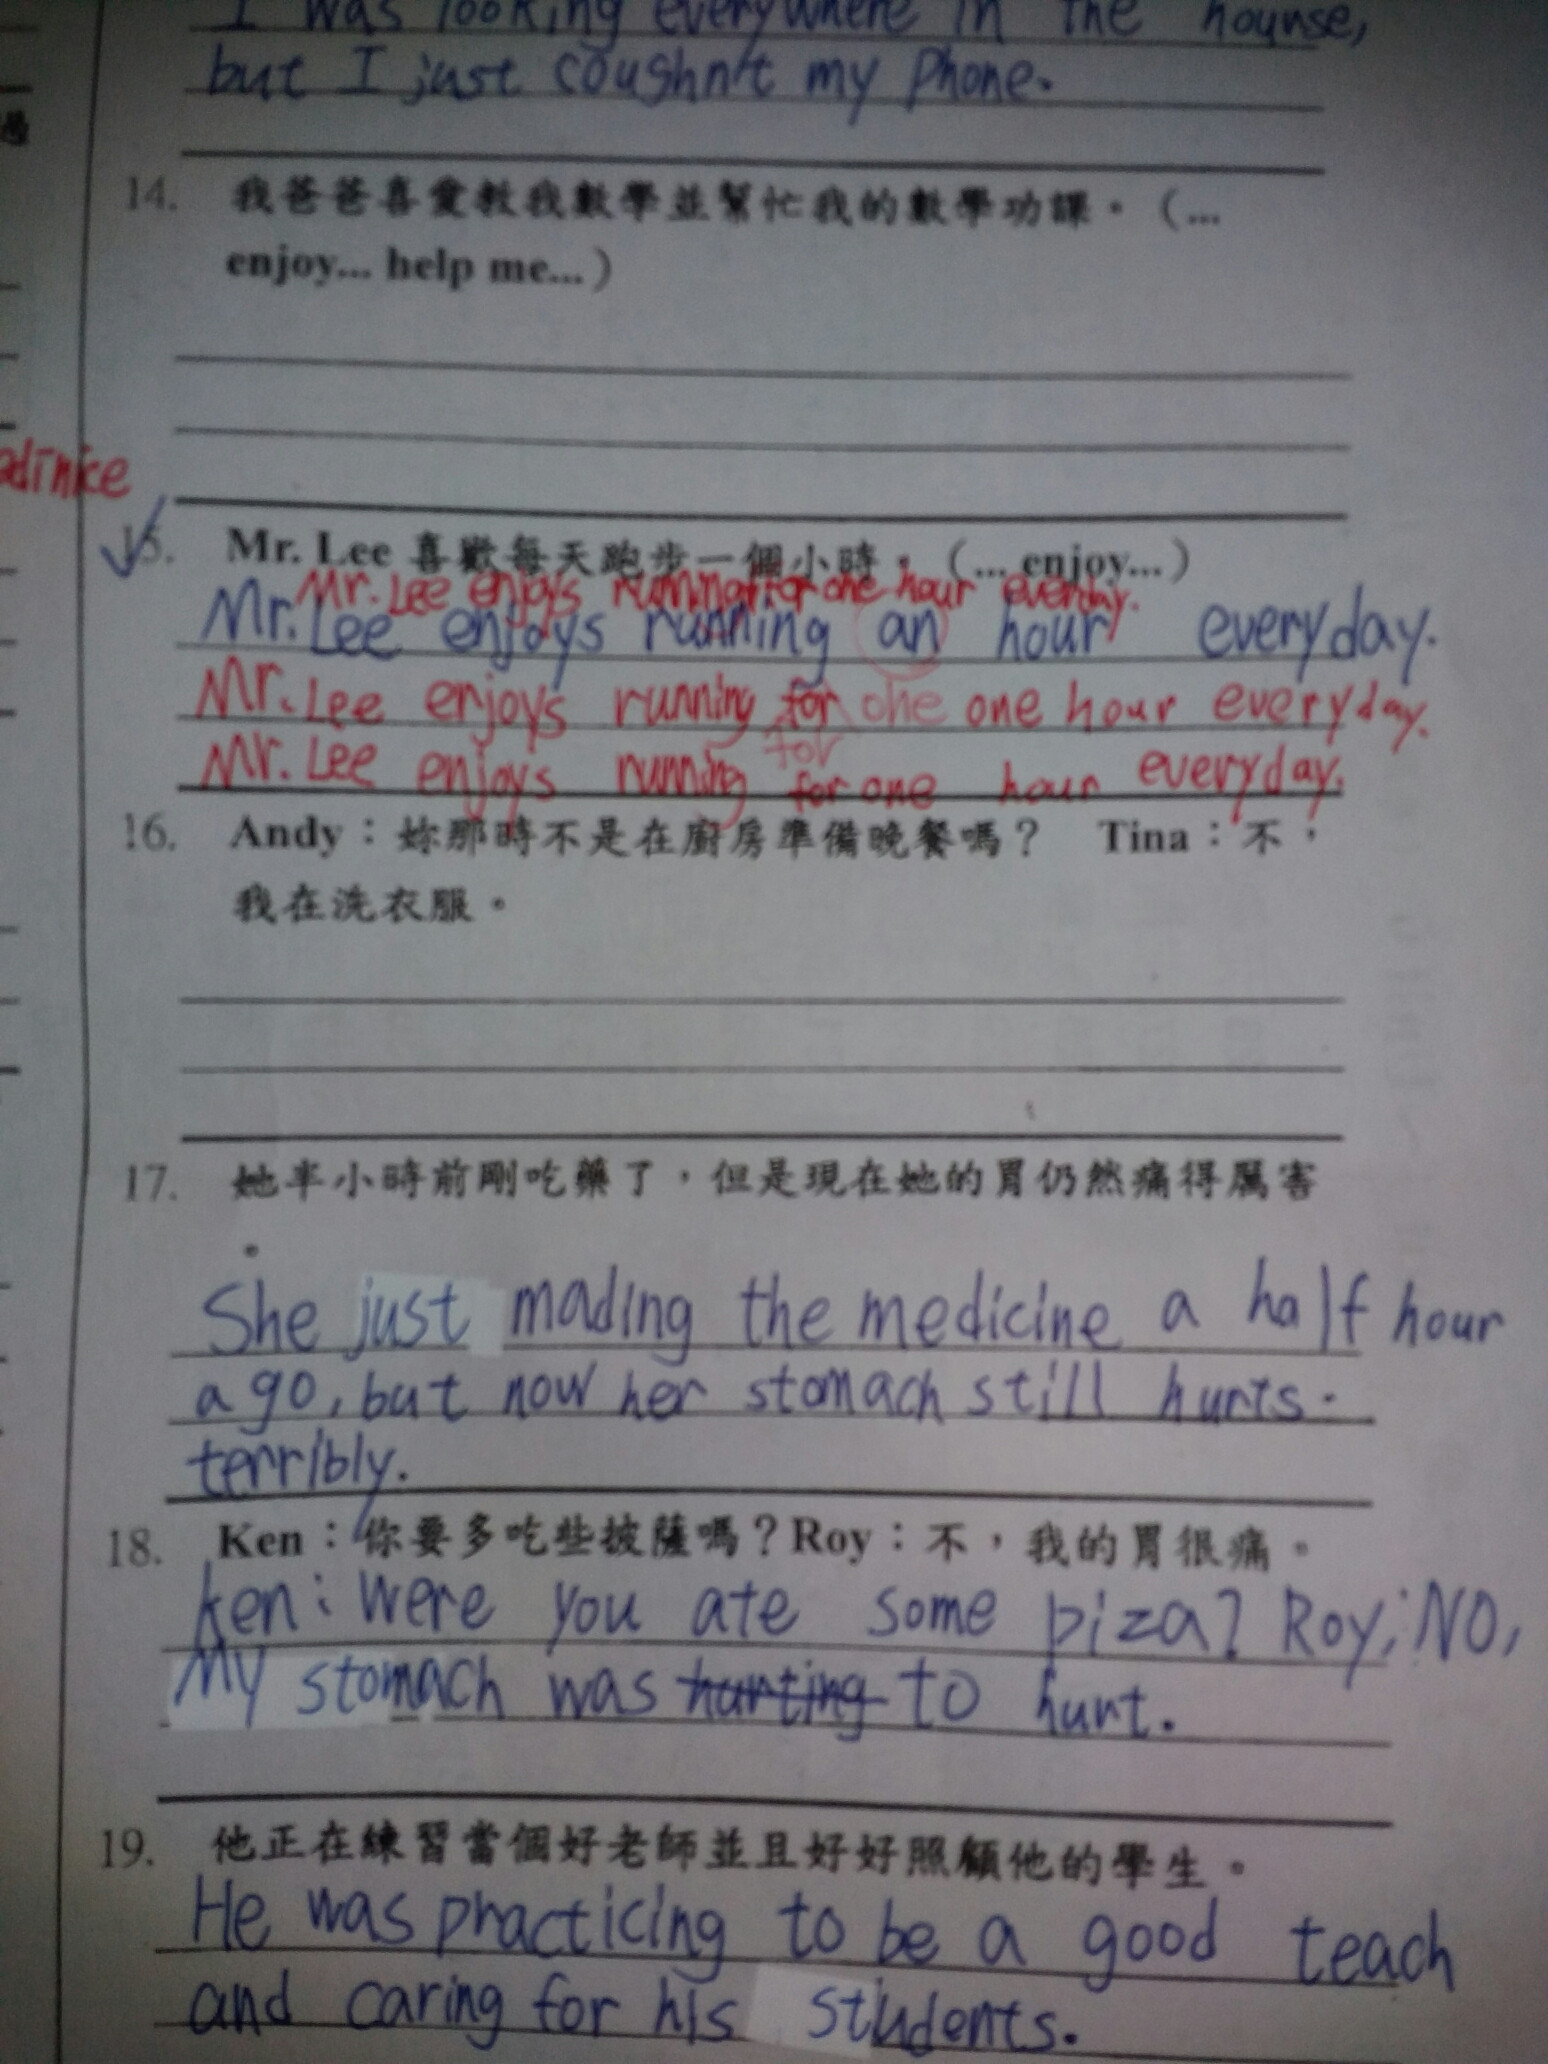 I was looking everywhere in the hounse,
but I just coughn't my phone.
過
14. 我爸爸喜愛教我數學並幫忙我的數學功課。(...
enjoy... help me...)
15. Mr. Lee 喜歡每天跑步一個小時。(... enjoy...)
Mr. Lee enjoys running for one hour everday.
Mr. Lee enjoys running an hour everyday.
Mr. Lee enjoys running for one one hour everyday.
for
Mr. Lee enjoys running for one hour everyday.
16. Andy：妳那時不是在廚房準備晚餐嗎？ Tina：不，
我在洗衣服。
17. 她半小時前剛吃藥了，但是現在她的胃仍然痛得厲害
。
She just mading the medicine a half hour
ago, but now her stomach still hurts.
terribly.
18. Ken：你要多吃些披薩嗎？Roy：不，我的胃很痛。
Ken: Were you ate some piza? Roy: NO,
My stomach was hurting to hurt.
19. 他正在練習當個好老師並且好好照顧他的學生。
He was practicing to be a good teach
and caring for his students.